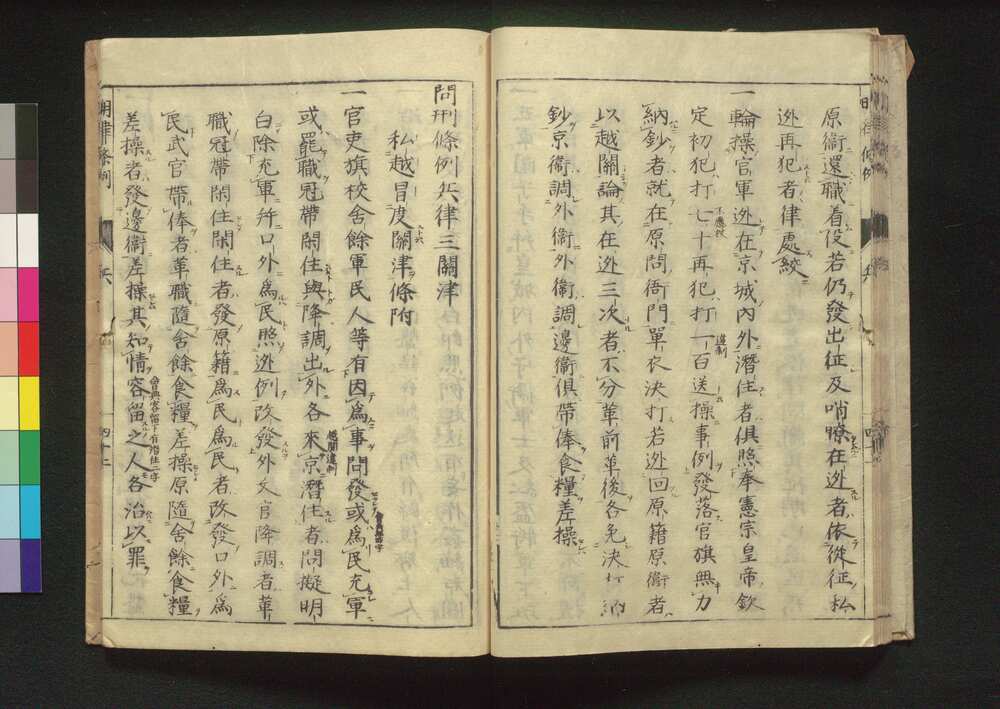 原衞還職着役若仍發出征及哨瞭在迯者依從征私
迯再犯者律處絞
一輪操官軍迯在京城內外潛住者俱照奉憲宗皇帝欽
定初犯打七十再犯打一百送操事例發落官旗無力
納鈔者就在原問衙門單衣決打若迯回原籍原衞者
以越關論其在迯三次者不分革前革後各免決打納
鈔京衞調外衞外衞調邊衞俱帶俸食糧差操
問刑條例兵律三關津
私越冒度關津條附
一官吏旗校舍餘軍民人等有因爲事問發或爲民充軍
或罷職冠帶閑住與降調出外各來京潛住者問擬明
白除充軍并口外爲民照迯例改發外文官降調者革
職冠帶閑住閑住者發原籍爲民爲民者改發口外爲
民武官帶俸者革職隨舍餘食糧差操原隨舍餘食糧
差操者發邊衞差操其知情容留之人各治以罪
明律條例
兵
四十二